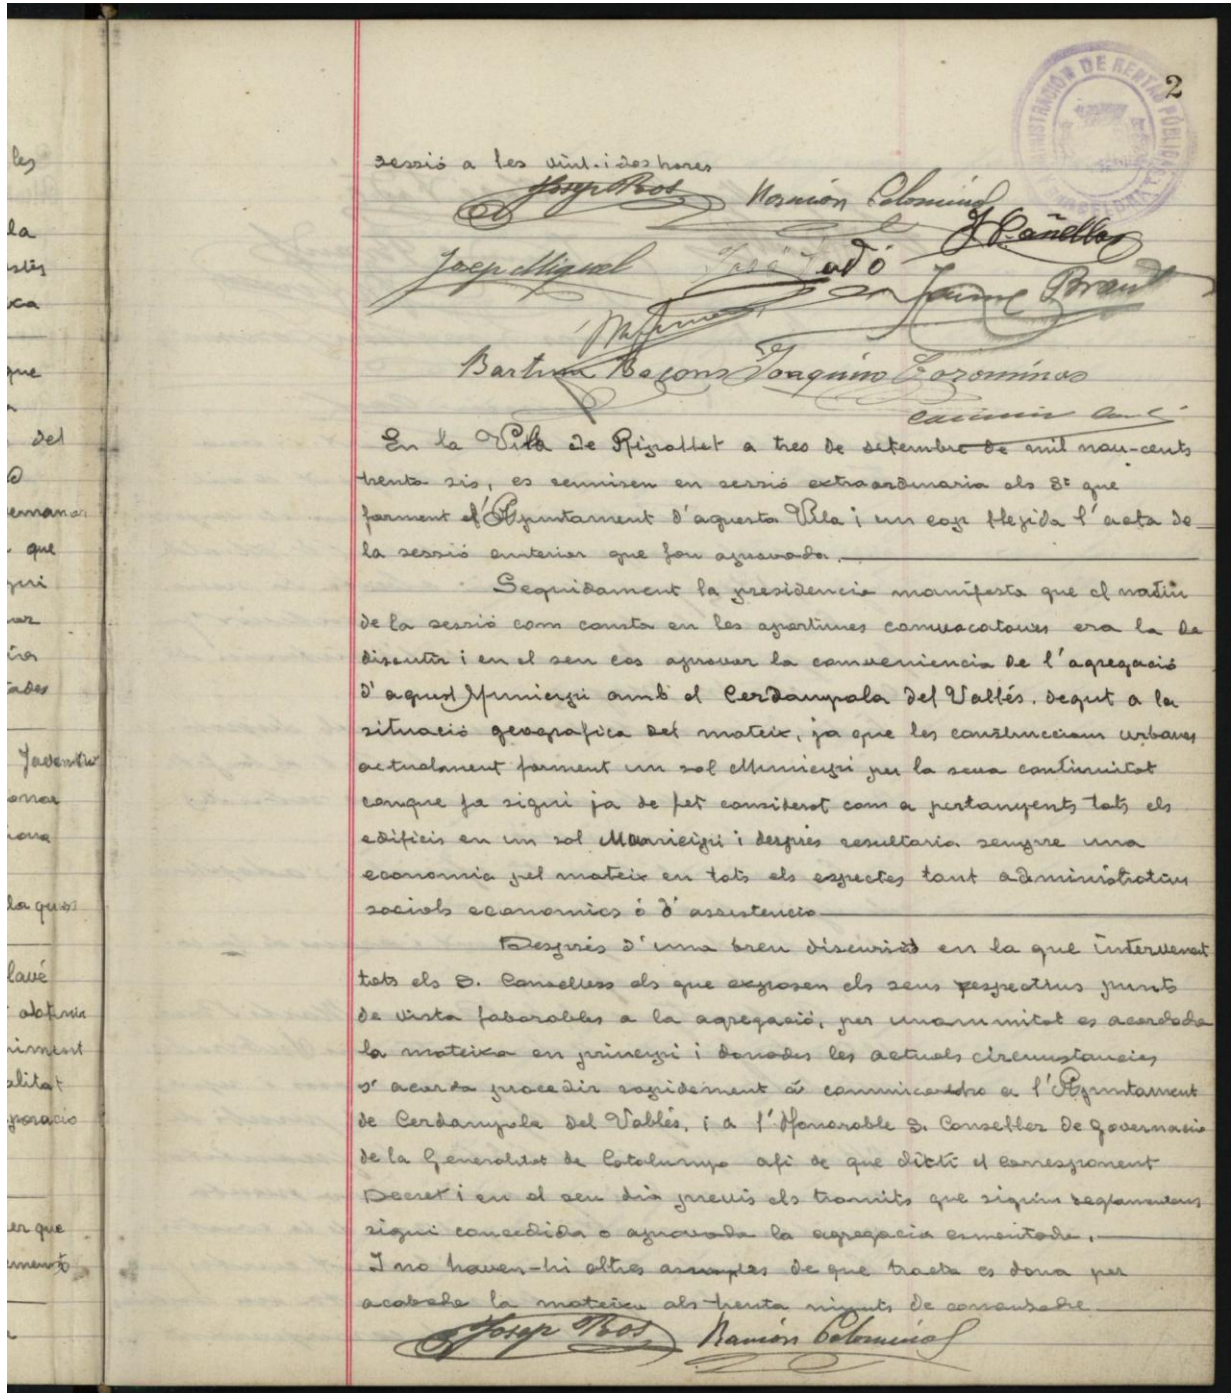 les
la
ca
que
del
que
Joventut
la qual
lavé
er que
2
sessió a les vint-i-dos hores
Josep Ros Ramón Colominas
J Cañellas
Josep Miquel José Tadó
Jaume Brau
Bartra Bacons Joaquim Corominas
En la Vila de Ripollet a tres de setembre de mil nou-cents
trenta sis, es reuniren en sessió extraordinaria els Srs que
forment l'Ajuntament d'aquesta Vila i un cop llegida l'acta de
la sessió anterior que fou aprovada.
Seguidament la presidencia manifesta que el motiu
de la sessió com consta en les oportunes convocatories era la de
discutir i en el seu cas aprovar la conveniencia de l'agregació
d'aquest Municipi amb el Cerdanyola del Vallés. degut a la
situació geografica del mateix, ja que les construccions urbanes
actualment forment un sol Municipi per la seva continuitat
conque fa sigui ja de fet considerat com a pertanyents tots els
edificis en un sol Municipi i després resultaria sempre una
economia pel mateix en tots els espectes tant administratius
socials economics ó d'assistencia
Després d'una breu discurió en la que intervenen
tots els S. Consellers els que exposen els seus respectius punts
de vista faborables a la agregació, per unanimitat es acordada
la mateixa en principi i donades les actuals circumstancies
s'acorda procedir rapidement á comunicar-ho a l'Ajuntament
de Cerdanyola del Vallés, i a l'Honorable S. Conseller de Governació
de la Generalitat de Catalunya afi de que dicti el corresponent
Decret i en el seu dia previs els tramits que siguin reglamentaris
sigui concedida o aprovada la agregacia esmentada.
I no haven-hi altres assumptes de que tracta es dona per
acabada la mateixa als trenta minuts de començada
Josep Ros Ramón Colominas